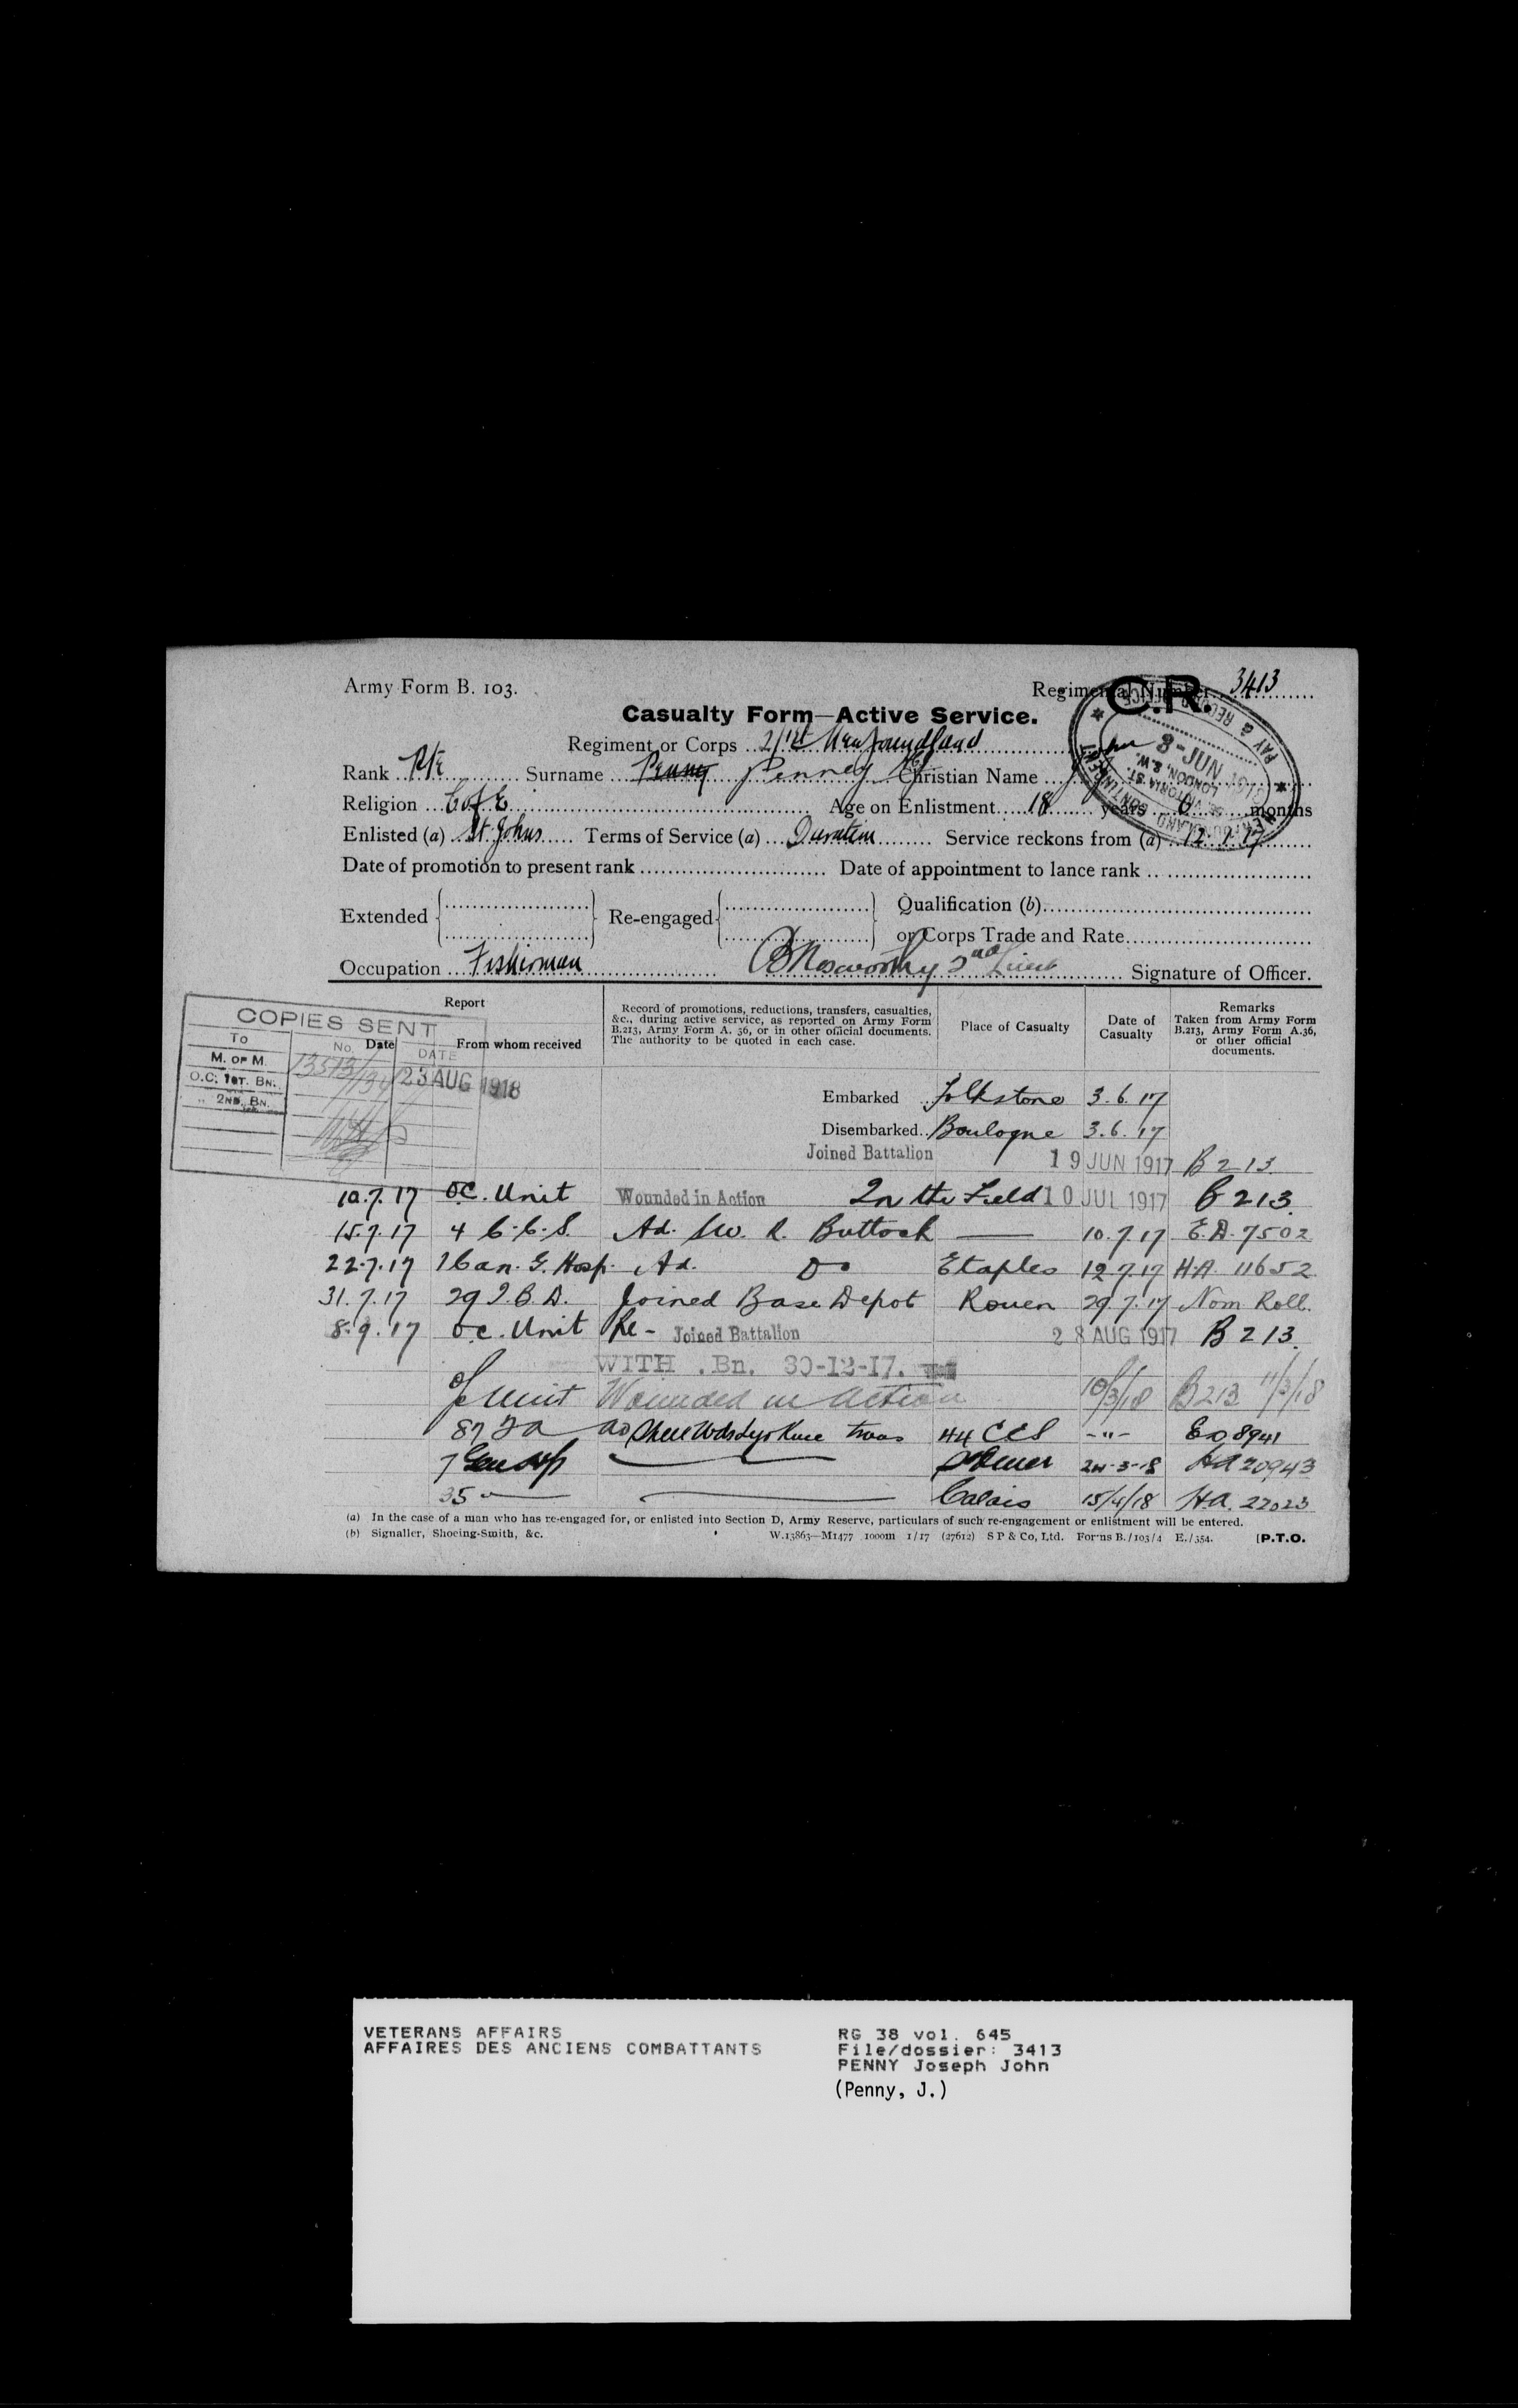 Army Form B. 103.
Regimental Number 3413
C.R.
Casualty Form—Active Service.
Regiment or Corps 2/1st Newfoundland
Rank Pte Surname Penny Penney Christian Name
Religion C of E Age on Enlistment 18 years 0 months
Enlisted (a) St. Johns Terms of Service (a) Duration Service reckons from (a) 12.1.17
Date of promotion to present rank Date of appointment to lance rank
Extended Re-engaged Qualification (b)
or Corps Trade and Rate
Occupation Fisherman 2nd Lieut Signature of Officer.
PAY & RECORD
8-JUN
VICTORIA ST.
LONDON, S.W.
COPIES SENT
To No. DATE
M. OF M.
O.C. 1ST. BN. 23 AUG 1918
" 2ND. BN.
Report
Date From whom received
Record of promotions, reductions, transfers, casualties, &c., during active service, as reported on Army Form B.213, Army Form A. 36, or in other official documents. The authority to be quoted in each case.
Place of Casualty
Date of Casualty
Remarks
Taken from Army Form B.213, Army Form A.36, or other official documents.
Embarked Folkstone 3.6.17
Disembarked Boulogne 3.6.17
Joined Battalion 19 JUN 1917 B 213
10.7.17 O.C. Unit Wounded in Action In the Field 10 JUL 1917 B 213.
15.7.17 4 C.C.S. Ad. S.W. R. Buttock — 10.7.17 E.D. 7502
22.7.17 1 Can. G. Hosp. Ad. Do Etaples 12.7.17 H.A. 11652
31.7.17 29 I.B.D. Joined Base Depot Rouen 29.7.17 Nom Roll.
8.9.17 O.C. Unit Re- Joined Battalion 28 AUG 1917 B 213.
WITH . Bn. 30-12-17.
Unit Wounded in Action 10/3/18 B213 11/3/18
87 FA ad Shell Wds Knee trans 44 CCS -"- ED 8941
7 Gen Hosp — St Omer 24-3-18 HA 20943
35 — — Calais 15/4/18 H.A. 22023
(a) In the case of a man who has re-engaged for, or enlisted into Section D, Army Reserve, particulars of such re-engagement or enlistment will be entered.
(b) Signaller, Shoeing-Smith, &c. W.13863—M1477 1000m 1/17 (27612) S P & Co, Ltd. Forms B./103/4 E./354. [P.T.O.
VETERANS AFFAIRS
AFFAIRES DES ANCIENS COMBATTANTS
RG 38 vol. 645
File/dossier: 3413
PENNY Joseph John
(Penny, J.)